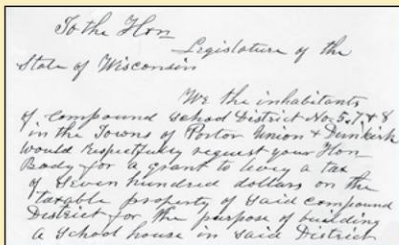 To the Hon
Legislature of the
State of Wisconsin
We the inhabitants
of Compound School District No. 5, 7, & 8
in the Towns of Porter Union & Dunkirk
would Respectfully request your Hon
Body for a grant to levy a tax
of Seven hundred dollars on the
taxable property of Said Compound
District for the purpose of building
a School house in Said District